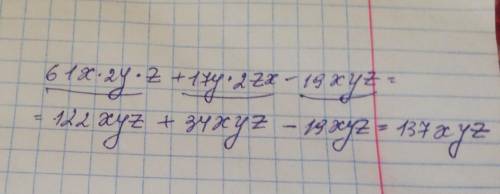 61x·2y·z + 17y·2zx - 19xyz =
= 122xyz + 34xyz - 19xyz = 137xyz